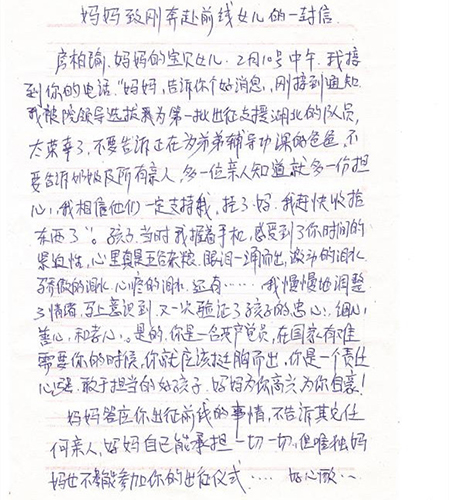 妈妈致刚奔赴前线女儿的一封信
房柏瑜,妈妈的宝贝女儿.2月10号中午.我接
到你的电话,"妈妈,告诉你个好消息,刚接到通知
我被院领导选拔我为第一批出征支援湖北的队员,
太荣幸了,不要告诉正在为弟弟辅导功课的爸爸,不
要告诉奶奶及所有亲人,多一位亲人知道就多一份担
心,我相信他们一定支持我,挂了.妈.我赶快收拾
东西了"。孩子,当时我握着手机,感受到了你时间的
紧迫性,心里真是五谷杂粮.眼泪一涌而出,激动的泪水.
骄傲的泪水.心疼的泪水.还有……我慢慢地调整
了情绪,马上意识到,又一次验证了孩子的忠心,细心,
善心,和孝心,是的,你是一名共产党员,在国家有难
需要你的时候,你就应该挺胸而出,你是一个责任
心强.敢于担当的好孩子.妈妈为你高兴为你自豪!
妈妈答应你出征前线的事情,不告诉其它任
何亲人,妈妈自己能承担一切一切,但唯独妈
妈也不能参加你的出征仪式……好心酸~